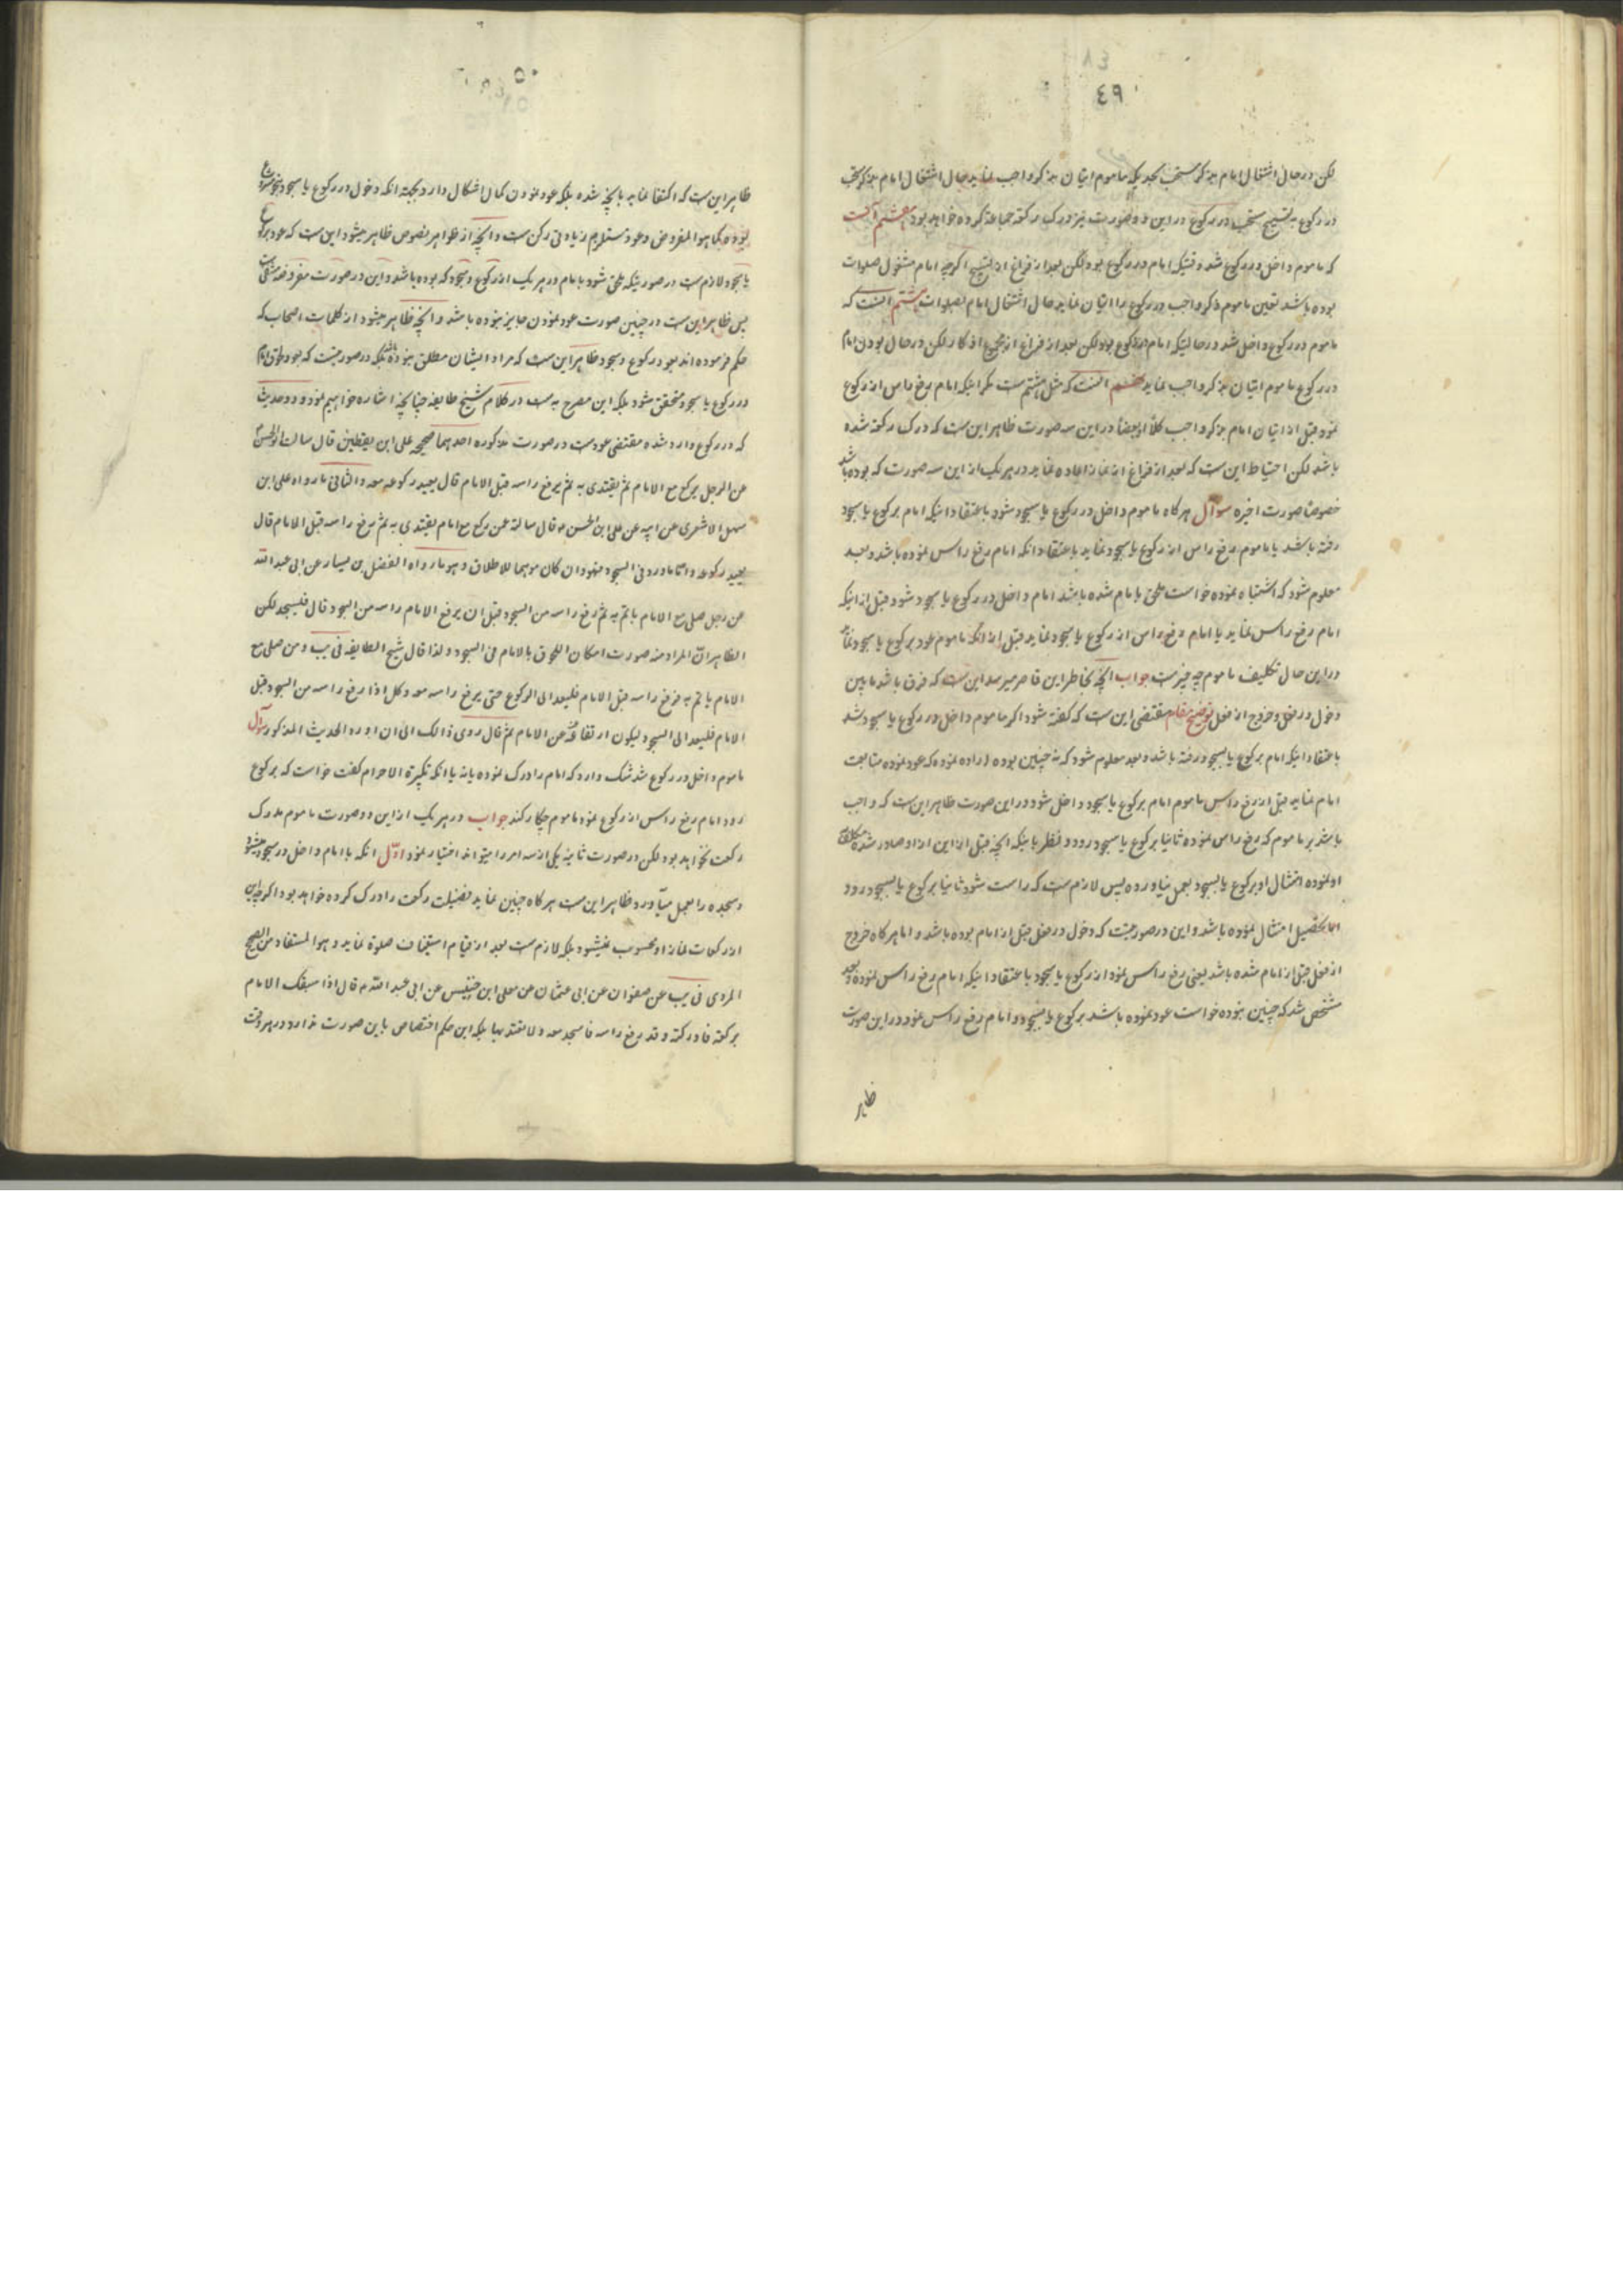 ٤٩
لکن در حال اشتغال امام بذکر مستحب بحدیکه ماموم اتیان بذکر واجب نماید حال اشتغال امام بذکر مستحب
در رکوع به تسبیح مستحب در رکوع در این دو صورت نیز درک رکعة جماعة کرده خواهد بود هفتم آنست
که ماموم داخل در رکوع شد وقتیکه امام در رکوع بود لکن بعد از فراغ از تسبیح اگرچه امام مشغول صلوات
بوده باشد تعیین ماموم ذکر واجب در رکوع را اتیان نماید حال اشتغال امام بصلوات هشتم انست که
ماموم در رکوع داخل شد در حالتیکه امام در رکوع بود لکن بعد از فراغ از جمیع اذکار لکن در حال بودن امام
در رکوع ماموم اتیان بذکر واجب نماید نهم انست که مثل هشتم است مگر اینکه امام رفع راس از رکوع
نمود قبل از اتیان امام بذکر واجب کلاً او بعضاً در این سه صورت ظاهر این است که درک رکعة شده
باشد لکن احتیاط این است که بعد از فراغ از نماز اعاده نماید در هر یک از این سه صورت که بوده باشد
خصوصاً صورت اخیره سوآل هر گاه ماموم داخل در رکوع یا سجود شود باعتقاد اینکه امام برکوع یا سجود
رفته باشد یا ماموم رفع راس از رکوع یا سجود نماید باعتقاد انکه امام رفع راس نموده باشد و بعد
معلوم شود که اشتباه نموده خواست ملحق بامام شده باشد امام داخل در رکوع یا سجود شود قبل از اینکه
امام رفع راس نماید یا امام رفع راس از رکوع یا سجود نماید قبل از انکه ماموم عود برکوع یا سجود نماید
در این حال تکلیف ماموم چه چیز است جواب انچه بخاطر این قاصر میرسد این است که فرق باشد ما بین
دخول در فعل و خروج از فعل توضیح مقام مقتضی این است که گفته شود اگر ماموم داخل در رکوع یا سجود شد
باعتقاد اینکه امام برکوع یا بسجود رفته باشد و بعد معلوم شود که نه چنین بوده اراده نموده که عود نموده متابعت
امام نماید قبل از رفع راس ماموم امام برکوع یا سجود داخل شود در این صورت ظاهر این است که واجب
باشد بر ماموم که رفع راس نموده ثانیا برکوع یا سجود رود و نظر باینکه انچه قبل از این از او صادر شده
او نموده امتثال او برکوع یا بسجود بعمل نیاورده پس لازم است که راست شود ثانیا برکوع یا بسجود رود
تا تحصیل امتثال نموده باشد و این در صورتیست که دخول در فعل قبل از امام بوده باشد و اما هر گاه خروج
از فعل قبل از امام شده باشد یعنی رفع راس نمود از رکوع یا سجود باعتقاد اینکه امام رفع راس نموده و بعد
مشخص شد که چنین نبوده خواست عود نموده باشد برکوع یا سجود و امام رفع راس نمود در این صورت
ظاهر
٥٠
ظاهر این است که اکتفا نماید بانچه شده بلکه عود نمودن کمال اشکال دارد بجهة انکه دخول در رکوع یا سجود
بوده کما هو المفروض و عود مستلزم زیادتی رکن است و انچه از ظواهر نصوص ظاهر میشود این است که عود برکوع
یا سجود لازم است در صورتیکه ملحق شود بامام در هر یک از رکوع و سجود که بوده باشد و این در صورت مفروضه منتفی است
پس ظاهر این است در چنین صورت عود نمودن جایز نبوده باشد و انچه ظاهر میشود از کلمات اصحاب که
حکم فرموده اند بعود رکوع و سجود ظاهر این است که مراد ایشان مطلق نبوده باشد بلکه در صورتیست که عود و لحوق بامام
در رکوع یا سجود متحقق شود بلکه این مصرح به است در کلام شیخ طایفه چنانچه اشاره خواهیم نمود و دو حدیث
که در رکوع وارد شده مقتضی عود است در صورت مذکوره احدهما صحیحه علی ابن یقطین قال سالت ابوالحسن
عن الرجل یرکع مع الامام ثم یقتدی به ثم یرفع راسه قبل الامام قال یعید رکوعه معه و الثانی ما رواه علی ابن
سهل الاشعری عن ابیه عن علی ابن الحسن قال سالته عن رکع مع امام یقتدی به ثم رفع راسه قبل الامام قال
یعید رکوعه و اما ما ورد فی السجود فهو و ان کان موهما للاطلاق و هو ما رواه الفضل بن یسار عن ابی عبد الله
عن رجل صلی مع الامام یاتم به ثم رفع راسه من السجود قبل ان یرفع الامام راسه من السجود قال فلیسجد لکن
الظاهر ان المراد منه صورت امکان اللحوق بالامام فی السجود و لذا قال شیخ الطایفه فی یب و من صلی مع
الامام یاتم به فرفع راسه قبل الامام فلیعد الی الرکوع حتی یرفع راسه معه و کل اذا رفع راسه من السجود قبل
الامام فلیعد الی السجود لیکون ارتفاعه عن الامام ثم قال روی ذالک الی ان اورد الحدیث المذکور سوآل
ماموم داخل در رکوع شد شک دارد که امام را درک نموده یا نه یا انکه تکبیرة الاحرام گفت خواست که برکوع
رود امام رفع راس از رکوع نمود ماموم چکار کند جواب در هر یک از این دو صورت ماموم مدرک
رکعت نخواهد بود لکن در صورت ثانیه یکی از سه امر را میتواند اختیار نمود اوّل انکه با امام داخل در سجود میشود
و سجده را بعمل میآورد و ظاهر این است هر گاه چنین نماید فضیلت رکعت را درک کرده خواهد بود اگرچه این
از رکعات نماز او محسوب نمیشود بلکه لازم است بعد از قیام استیناف صلوة نماید و هو المستفاد من الصحیح
المروی فی یب عن صفوان عن ابی عثمان عن معلی ابن خنیس عن ابی عبد الله قال اذا سبقک الامام
برکعة فادرکته و قد رفع راسه فاسجد معه و لا تعتد بها بلکه این حکم اختصاص باین صورت ندارد در هر وقت